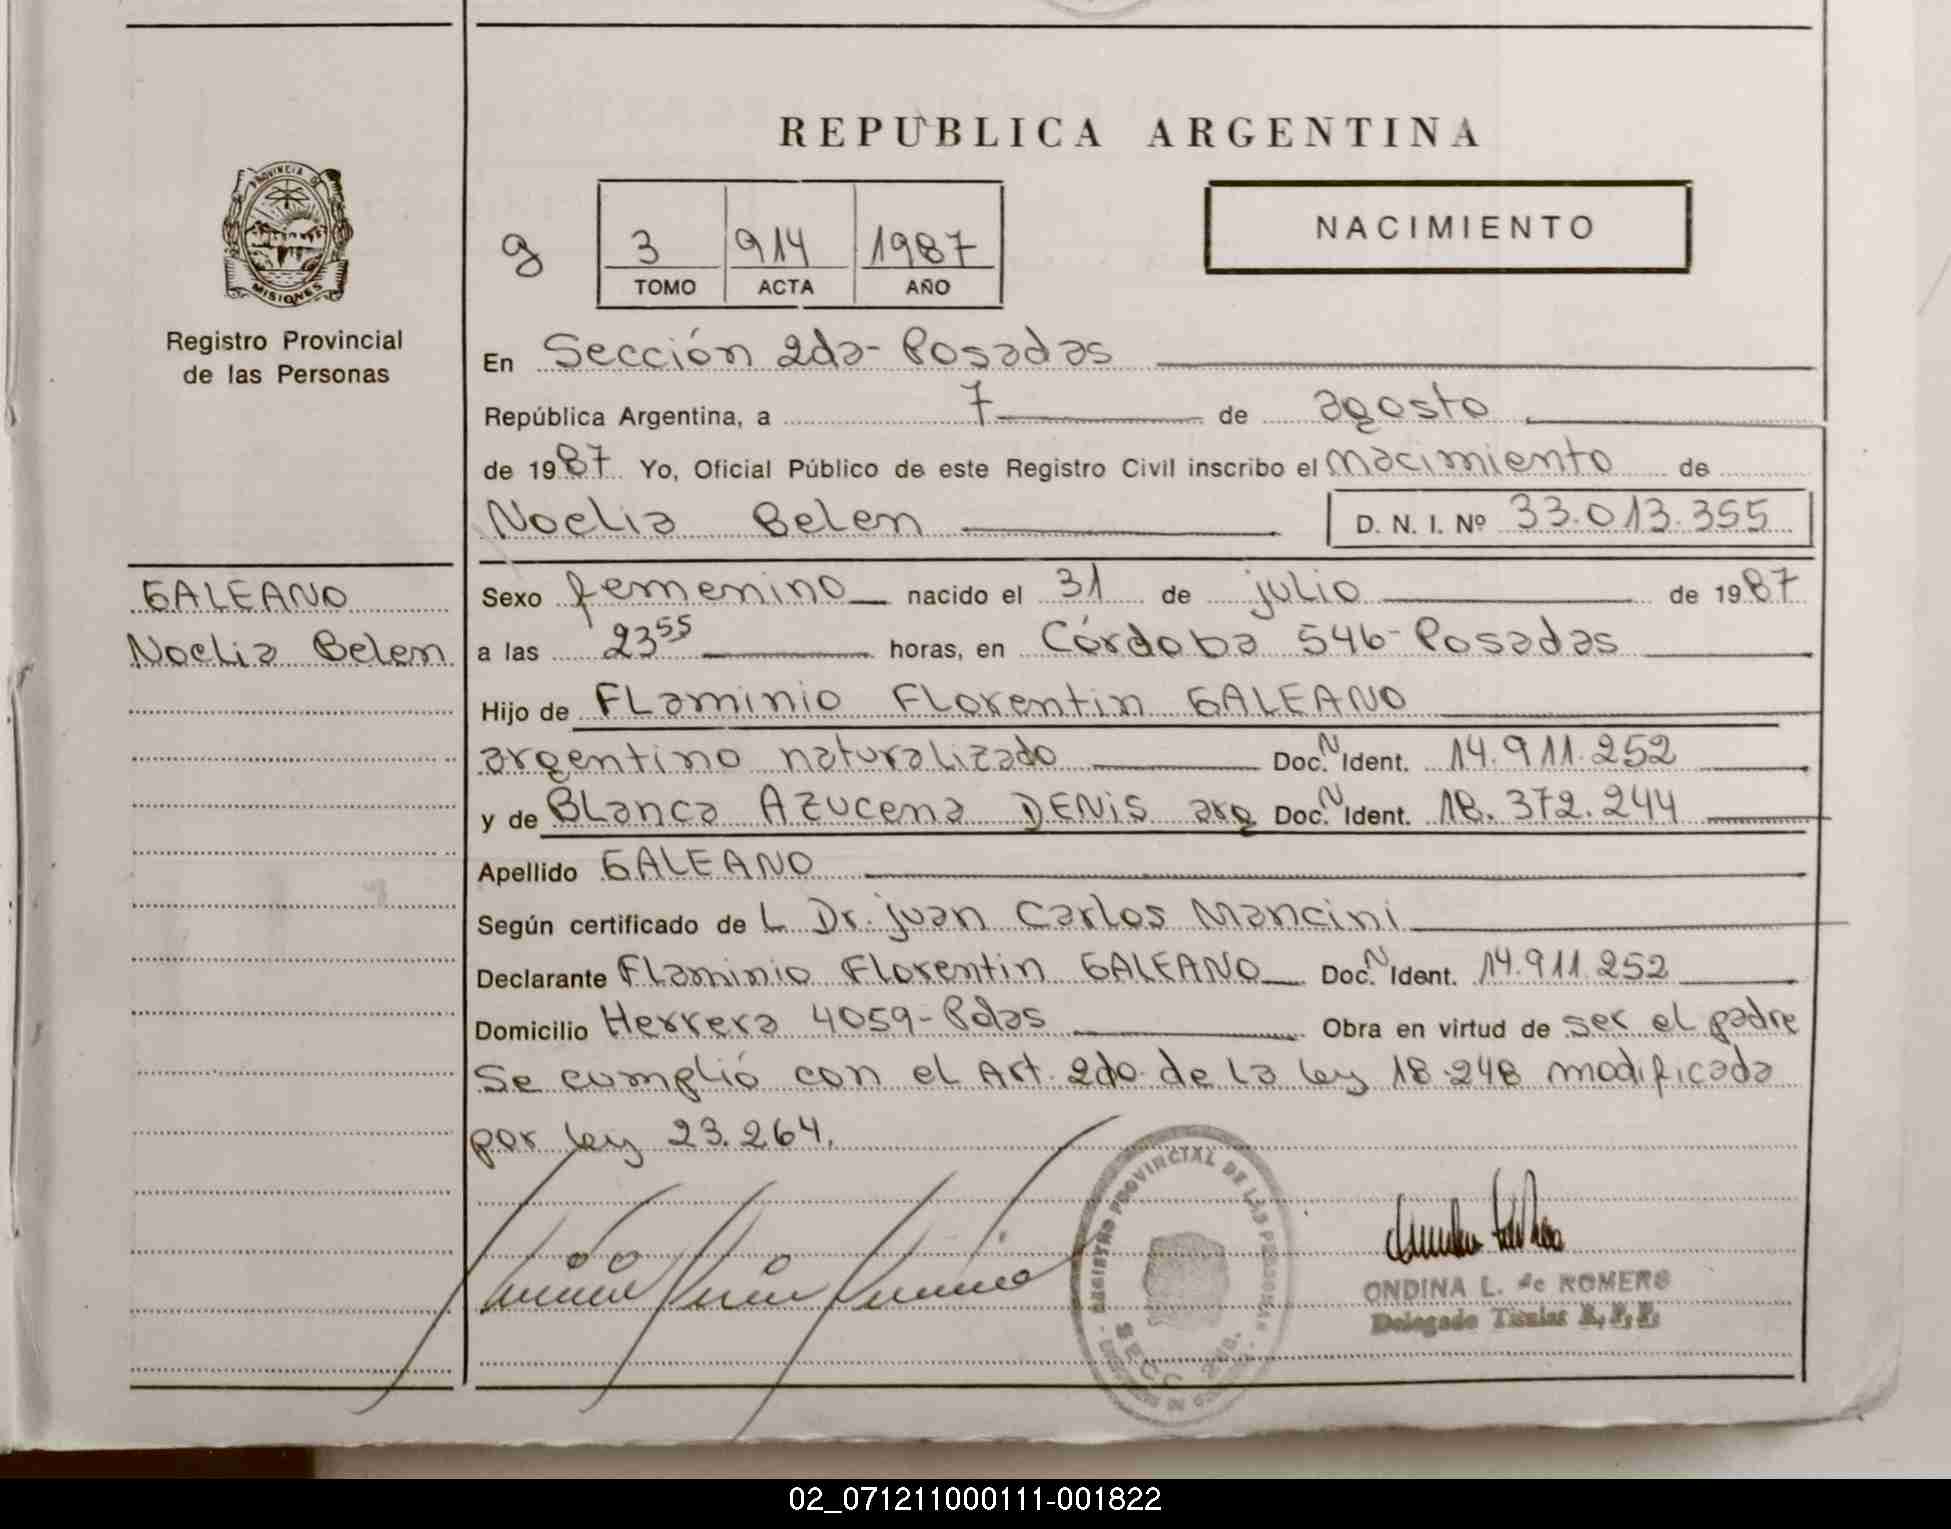 REPUBLICA ARGENTINA
PROVINCIA D
MISIONES
Registro Provincial
de las Personas
g
3 914 1987
TOMO ACTA AÑO
NACIMIENTO
En Sección 2da- Posadas
República Argentina, a 7 de agosto
de 1987 Yo, Oficial Público de este Registro Civil inscribo el nacimiento de
Noelia Belen D. N. I. Nº 33.013.355
GALEANO
Noelia Belen
Sexo femenino nacido el 31 de julio de 1987
a las 23 55 horas, en Córdoba 546- Posadas
Hijo de Flaminio Florentin GALEANO
argentino naturalizado Doc. N Ident. 14.911.252
y de Blanca Azucena DENIS arg Doc. N Ident. 18.372.244
Apellido GALEANO
Según certificado de L Dr. Juan Carlos Mancini
Declarante Flaminio Florentin GALEANO Doc. N Ident. 14.911.252
Domicilio Herrera 4059- Pdas Obra en virtud de ser el padre
Se cumplió con el Art. 2do de la ley 18.248 modificada
por ley 23.264.
REGISTRO PROVINCIAL DE LAS PERSONAS
SECC. 2da.
ONDINA L. de ROMERO
Delegado Titular
02_071211000111-001822